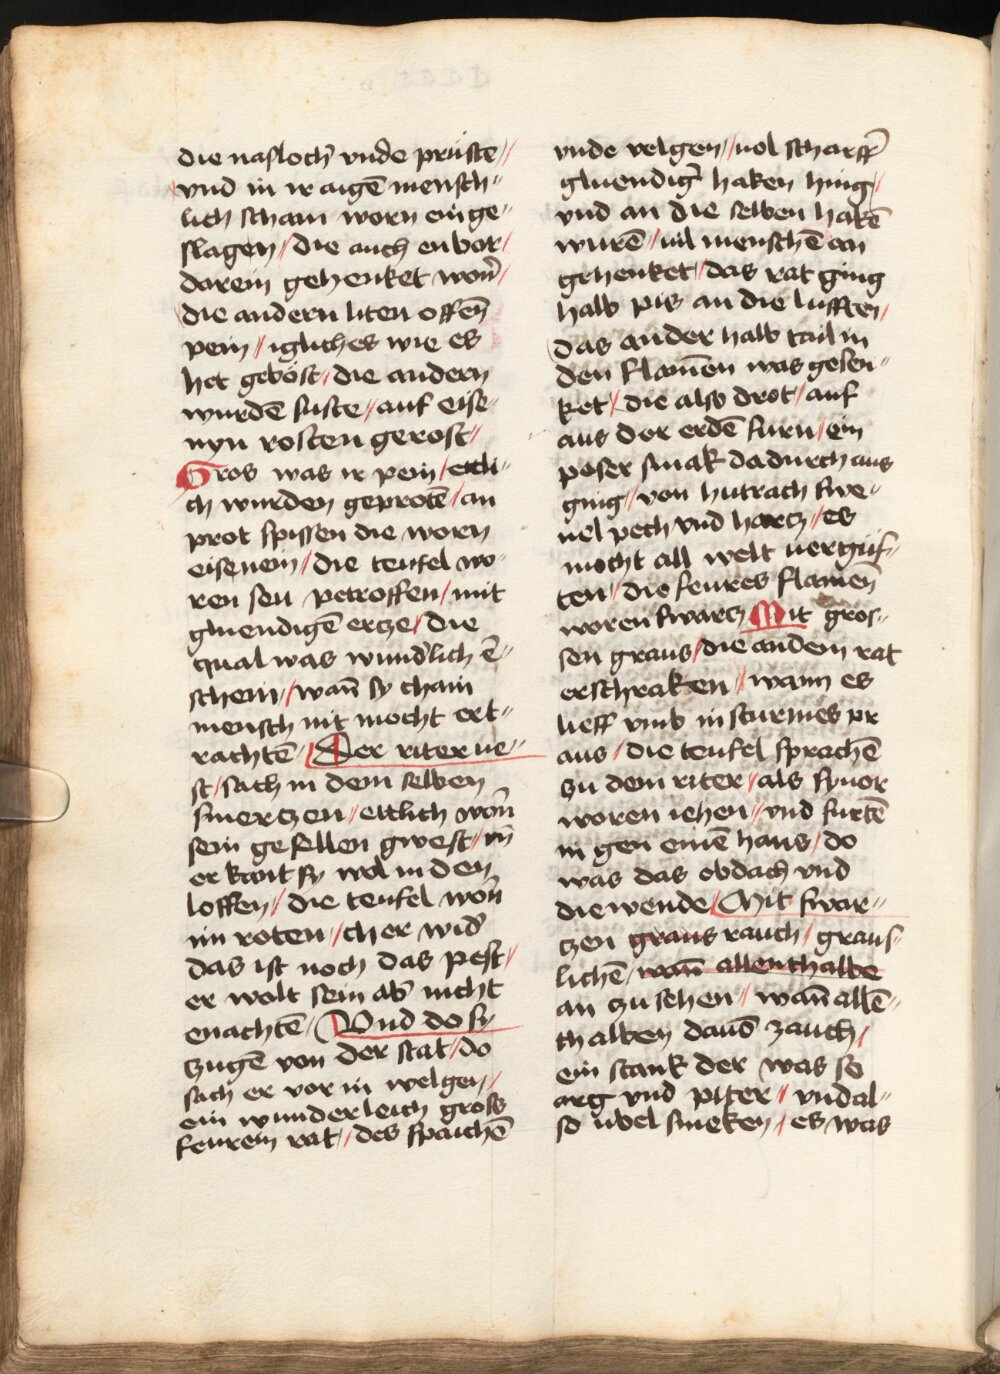 die nasloch̄ vnde prüste //
vnd in ir aigē mensch //
lich scham worn einge //
slagen / die auch enbor /
darein gehenket worn̄ /
die andern liten offen̄
pein / igliches wie es
het gebost / die andern
wurdē suste / auf eise //
nyn rosten gerost /
Gros was ir pein / etli //
ch wurden geprotē / an
prot spissen die worn
eisenein / die teufel wo //
ren seu petroffen / mit
gluendigē ertze / die
qual was wund̄lich ē //
schein / wan̄ sy chain
mensch nit mocht ert //
rachtē / Der riter ve //
st / sach in dem selben
smertzen / ettlich worn̄
sein gesellen gwest / vn̄
er kant sy wol in den
loffen / die teufel worn̄
im roten / cher wid̄
das ist noch das pest /
er wolt sein ab̄ nicht
enachtē / Vnd do sy
zugē von der stat / do
sach er vor in welgen /
ein wunderleich gross
feurein rat / des spaichē
vnde velgen // vol scharff̄
gluendiḡ haken hing /
vnd an die selben hakē
wurē / vil menschē an
gehenket / das rat ging
halb pis an die lufften /
das ander halb tail in
den flam̄en was gesen //
ket / die also drot / auf
aus der erdē furn / ein
poser smak dadurch aus
ging / von hutrach swe //
vel pech vnd hartz / es
mocht all welt vergif //
ten / die feures flamen̄
woren swartz Mit gros //
sen graus / die andern rat
erschraken // wann es
lieff vmb in sturmes pr
aus / die teufel sprachē
zu dem riter / als sy vor
woren iehen // vnd furtē
in gen einē haus / do
was das obdach vnd
die wende / Mit swar //
tzen graus rauch / graus /
lichē / wan̄ allenthalbē
an zu sehen // wan̄ allē //
thalben dauō zauch /
ein stank der was so
arg vnd piter // vnd al //
so vbel smeken / es was